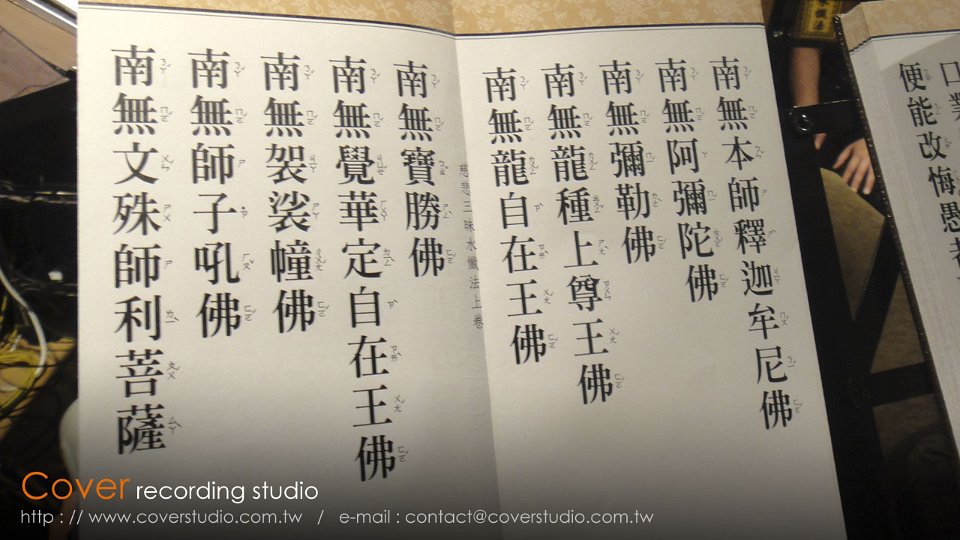 南無本師釋迦牟尼佛
南無阿彌陀佛
南無彌勒佛
南無龍種上尊王佛
南無龍自在王佛
慈悲三昧水懺法上卷
南無寶勝佛
南無覺華定自在王佛
南無袈裟幢佛
南無師子吼佛
南無文殊師利菩薩
便能改悔愚
Cover recording studio
http : // www.coverstudio.com.tw / e-mail : contact@coverstudio.com.tw